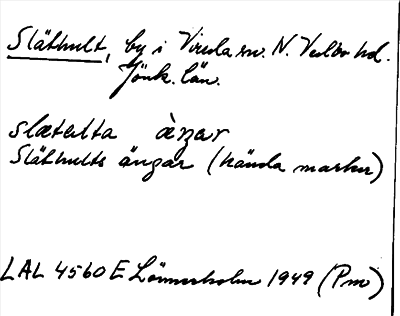 Släthult, by i Vireda sn. N. Vedbo hd.
Jönk. län.
slætulta àŋar
Släthults ängar (hända marker)
LAL 4560 E Lönnerholm 1949 (Pm)